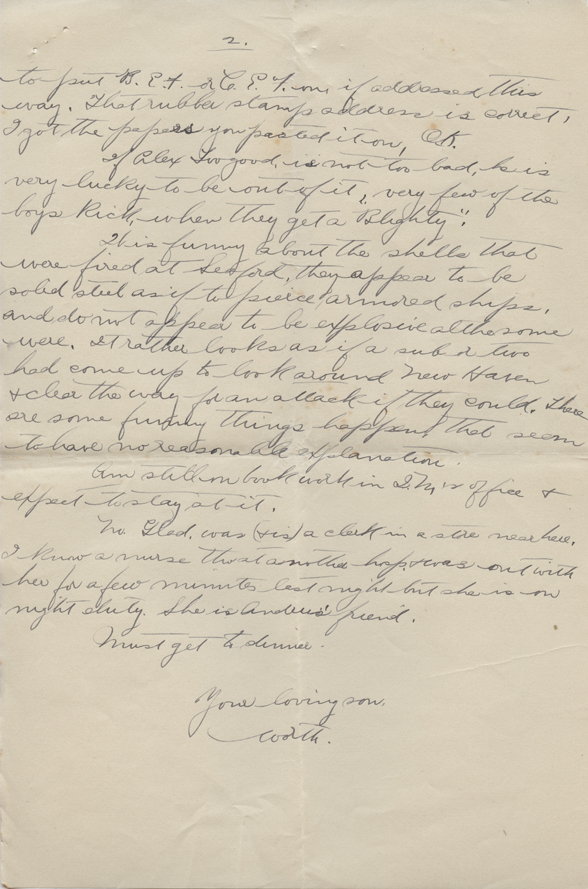 2.
to put B.E.F. or C.E.F. on if addressed this
way. That rubber stamp address is correct,
I got the papers you pasted it on, OK.
If Alex Toogood, is not too bad, he is
very lucky to be out of it, very few of the
boys kick, when they get a "Blighty".
It is funny about the shells that
were fired at Seaford, they appear to be
solid steel as if to pierce armored ships,
and do not appear to be explosive altho some
were. It rather looks as if a sub or two
had come up to look around New Haven
& clear the way for an attack if they could. There
are some funny things happen, that seem
to have no reasonable explanation.
Am still on book work in Q.M.'s office &
expect to stay at it.
No Glad. was (& is) a clerk in a store near here.
I know a nurse tho at another hosp & was out with
her for a few minutes last night but she is on
night duty. She is Andrew's friend.
Must get to dinner.
Your loving son.
Worth.